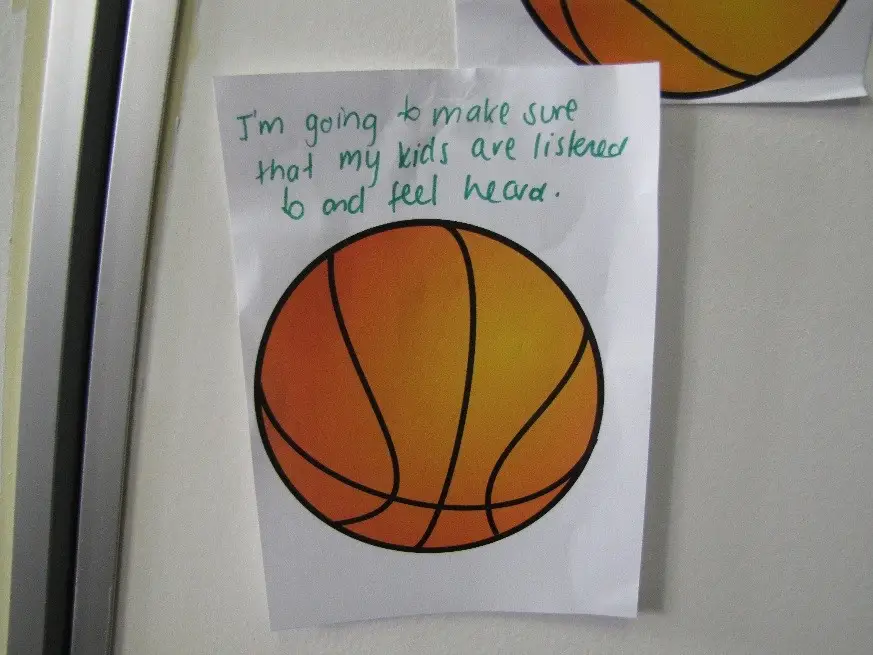 I'm going to make sure
that my kids are listened
to and feel heard.